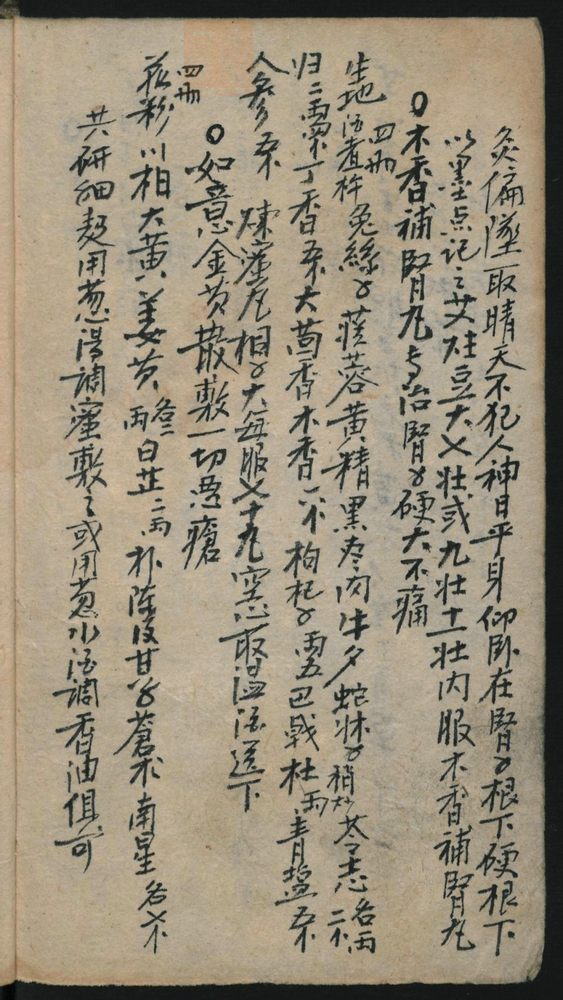 灸偏墜取晴天不犯人神日平身仰卧在腎子根下硬根下
以墨点記之艾炷豆大乂壮或九壮十一壮内服木香補腎丸
○木香補腎丸专治腎子硬大不痛
生地 四両 酒煮杵 兔絲子 蓯蓉 黄精 黒枣肉 牛夕 蛇牀子 稍炒 苓 志 各両二
归二両 丁香 大茴香 木香 枸杞子 両五 巴戟 杜 両 青盐
人參 煉蜜丸相子大每服乂十丸空心取温酒送下
○如意金黄散敷一切悪瘡
花粉 四両 川相 大黄 姜黄 各二両 白芷二両 朴 陈皮 甘 蒼朮 南星 各乂
共研細麪用葱湯調蜜敷之或用葱水酒調香油俱可